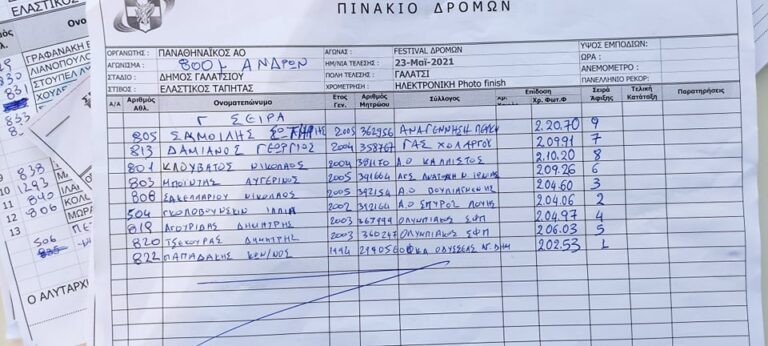 ΠΙΝΑΚΙΟ ΔΡΟΜΩΝ
ΕΛΑΣΤΙΚΟΣ
ΟΡΓΑΝΩΤΗΣ : ΠΑΝΑΘΗΝΑΪΚΟΣ ΑΟ ΑΓΩΝΑΣ : FESTIVAL ΔΡΟΜΩΝ ΥΨΟΣ ΕΜΠΟΔΙΩΝ:
ΑΓΩΝΙΣΜΑ : 800μ ΑΝΔΡΩΝ ΗΜ/ΝΙΑ ΤΕΛΕΣΗΣ : 23-Μαϊ-2021 ΩΡΑ :
ΣΤΑΔΙΟ : ΔΗΜΟΣ ΓΑΛΑΤΣΙΟΥ ΠΟΛΗ ΤΕΛΕΣΗΣ : ΓΑΛΑΤΣΙ ΑΝΕΜΟΜΕΤΡΟ :
ΣΤΙΒΟΣ : ΕΛΑΣΤΙΚΟΣ ΤΑΠΗΤΑΣ ΧΡΟΜΕΤΡΗΣΗ : ΗΛΕΚΤΡΟΝΙΚΗ Photo finish ΠΑΝΕΛΛΗΝΙΟ ΡΕΚΟΡ:
Α/Α Αριθμός Αθλ. Ονοματεπώνυμο Ετος Γεν. Αριθμός Μητρώου Σύλλογος Επίδοση Χρ. Φωτ.Φ Σειρά Αφιξης Τελική Κατάταξη Παρατηρήσεις
Γ ΣΕΙΡΑ
805 ΣΑΜΟΙΛΗΣ ΣΩΤΗΡΗΣ 2005 362956 ΑΝΑΓΕΝΝΗΣΗ 2.20.70 9
813 ΔΑΜΙΑΝΟΣ ΓΕΩΡΓΙΟΣ 2004 358767 ΓΑΣ ΧΟΛΑΡΓΟΥ 2.09.91 7
801 ΚΛΟΥΒΑΤΟΣ ΝΙΚΟΛΑΟΣ 2004 Α.Ο ΚΑΛΛΙΣΤΟΣ 2.10.20 8
803 ΑΥΓΕΡΙΝΟΣ 2005 2.09.26 6
808 ΣΑΚΕΛΛΑΡΙΟΥ ΝΙΚΟΛΑΟΣ 2005 392154 Α.Ο ΒΟΥΛΙΑΓΜΕΝΗΣ 2.04.60 3
504 2002 Α.Ο ΣΠΥΡΟΣ ΛΟΥΗΣ 2.04.06 2
819 ΑΓΟΥΡΙΔΗΣ ΔΗΜΗΤΡΗΣ 2003 367499 ΟΛΥΜΠΙΑΚΟΣ ΣΦΠ 2.04.97 4
820 ΤΣΕΚΟΥΡΑΣ ΔΗΜΗΤΡΗΣ 2003 360247 ΟΛΥΜΠΙΑΚΟΣ ΣΦΠ 2.06.03 5
822 ΠΑΠΑΔΑΚΗΣ ΚΩΝ/ΝΟΣ 1994 219056 ΟΔΥΣΣΕΑΣ 2.02.53 1
ΓΡΑΦΑΝΑΚΗ
830 ΛΙΑΝΟΠΟΥΛΟ
831
833
838
1293
840
806
13
506
Ο ΑΛΥΤΑΡΧ